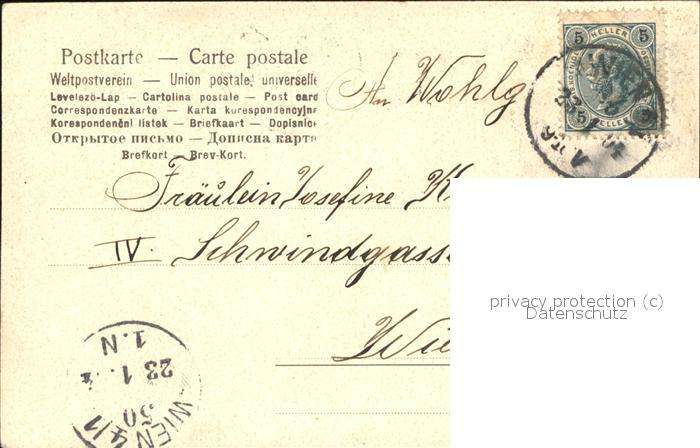 Postkarte — Carte postale
Weltpostverein — Union postale universelle
Levelezö-Lap — Cartolina postale — Post card
Correspondenzkarte — Karta korespondencyjna
Korespondenční lístek — Briefkaart — Dopisnice
Открытое письмо — Дописна карта
Brefkort — Brev-Kort.
An Wohlg
5 HELLER 5
5 HELLER 5
WIEN
Fräulein Josefine K
IV. Schwindgass
Wie
privacy protection (c)
Datenschutz
1.N
23 1.
50
WIEN 4/1